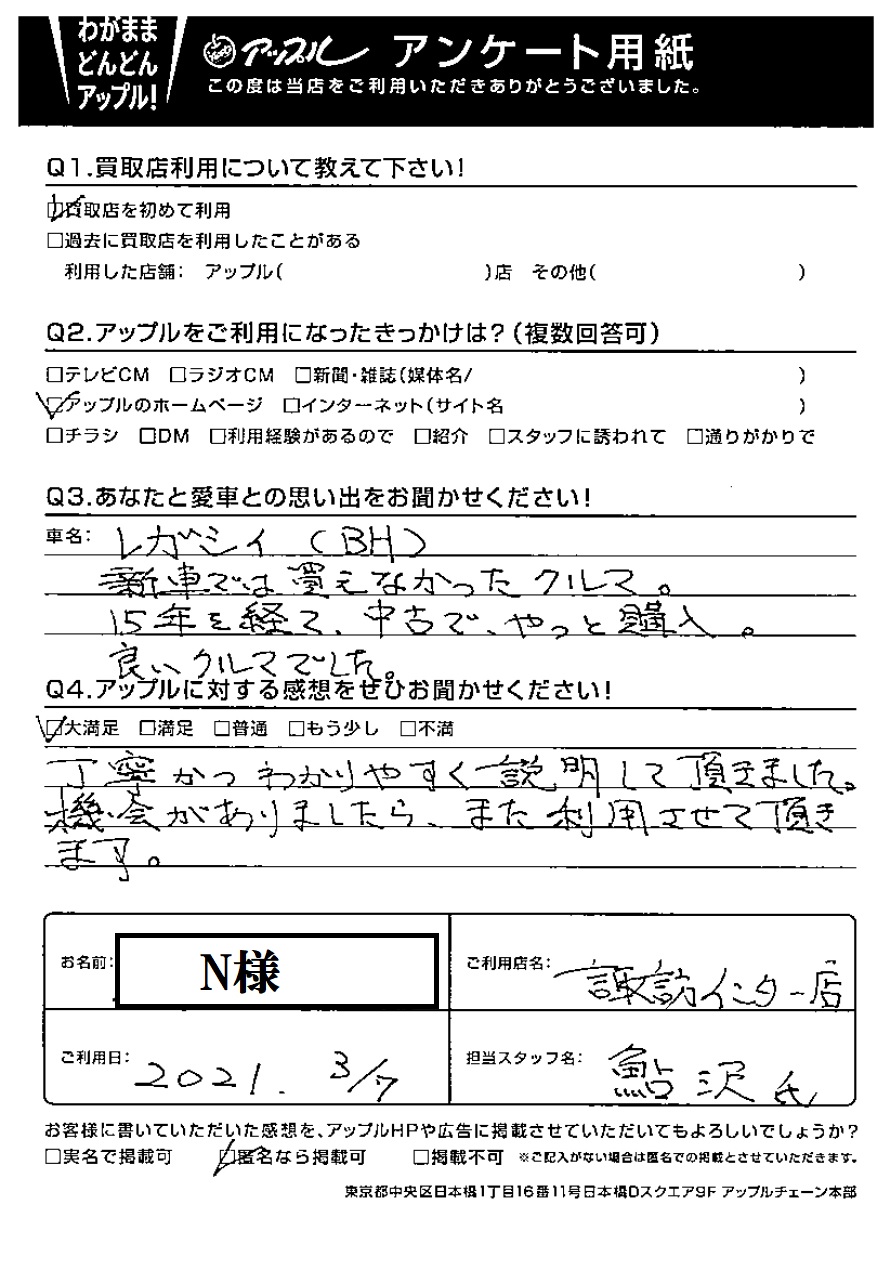 わがまま
どんどん
アップル!
アップル アンケート用紙
この度は当店をご利用いただきありがとうございました。
Q1.買取店利用について教えて下さい!
☑買取店を初めて利用
□過去に買取店を利用したことがある
利用した店舗： アップル( )店 その他( )
Q2.アップルをご利用になったきっかけは?(複数回答可)
□テレビCM □ラジオCM □新聞・雑誌(媒体名/ )
☑アップルのホームページ □インターネット(サイト名 )
□チラシ □DM □利用経験があるので □紹介 □スタッフに誘われて □通りがかりで
Q3.あなたと愛車との思い出をお聞かせください!
車名： レガシィ (BH)
新車では買えなかったクルマ。
15年を経て、中古で、やっと購入。
良いクルマでした。
Q4.アップルに対する感想をぜひお聞かせください!
☑大満足 □満足 □普通 □もう少し □不満
丁寧かつわかりやすく説明して頂きました。
機会がありましたら、また利用させて頂き
ます。
お名前： N様
ご利用店名： 諏訪インター店
ご利用日： 2021. 3/7
担当スタッフ名： 鮎沢氏
お客様に書いていただいた感想を、アップルHPや広告に掲載させていただいてもよろしいでしょうか?
□実名で掲載可 ☑匿名なら掲載可 □掲載不可 ※ご記入がない場合は匿名での掲載とさせていただきます。
東京都中央区日本橋1丁目16番11号日本橋Dスクエア9F アップルチェーン本部